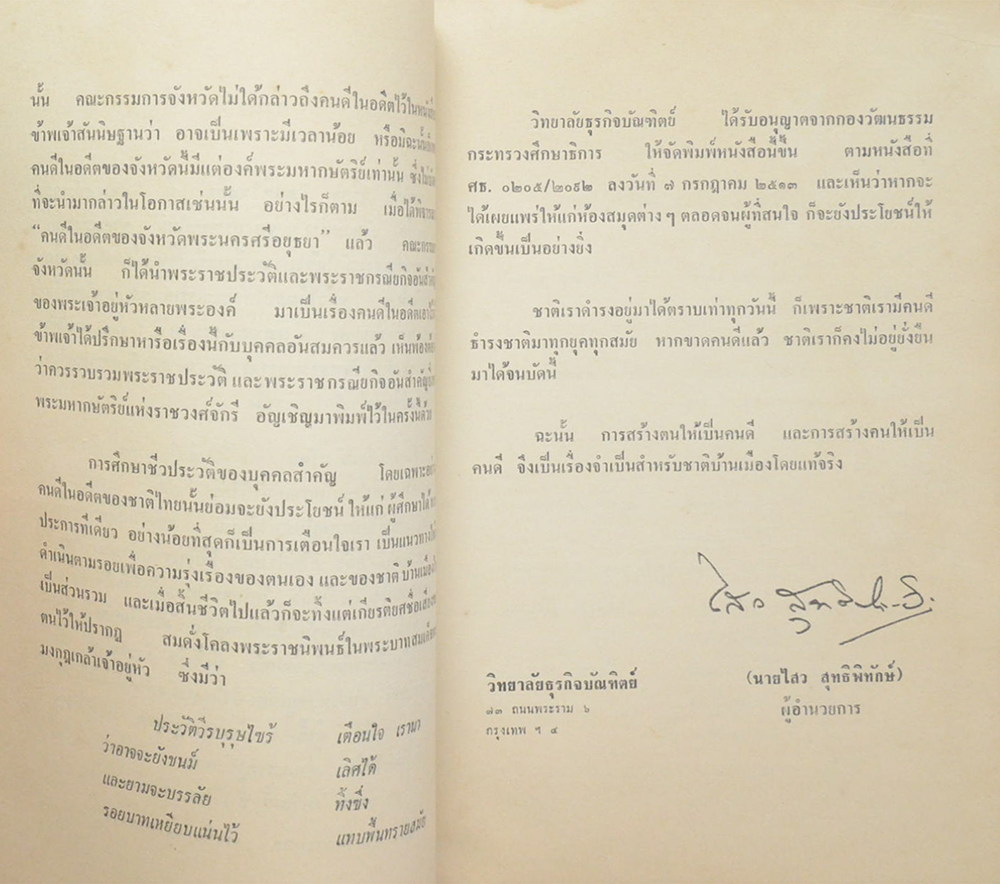 นั้น คณะกรรมการจังหวัดไม่ได้กล่าวถึงคนดีในอดีตไว้ในหนังสือ
ข้าพเจ้าสันนิษฐานว่า อาจเป็นเพราะมีเวลาน้อย หรือมิฉะนั้น
คนดีในอดีตของจังหวัดนี้มีแต่องค์พระมหากษัตริย์เท่านั้น ซึ่ง
ที่จะนำมากล่าวในโอกาสเช่นนั้น อย่างไรก็ตาม เมื่อได้
“คนดีในอดีตของจังหวัดพระนครศรีอยุธยา” แล้ว
จังหวัดนั้น ก็ได้นำพระราชประวัติและพระราชกรณียกิจอัน
ของพระเจ้าอยู่หัวหลายพระองค์ มาเป็นเรื่องคนดีในอดีต
ข้าพเจ้าได้ปรึกษาหารือเรื่องนี้กับบุคคลอันสมควรแล้ว
ว่าควรรวบรวมพระราชประวัติ และพระราชกรณียกิจอันสำคัญ
พระมหากษัตริย์แห่งราชวงศ์จักรี อัญเชิญมาพิมพ์ไว้ในครั้งนี้ด้วย
การศึกษาชีวประวัติของบุคคลสำคัญ โดยเฉพาะ
คนดีในอดีตของชาติไทยนั้นย่อมจะยังประโยชน์ ให้แก่ ผู้ศึกษาได้
ประการทีเดียว อย่างน้อยที่สุดก็เป็นการเตือนใจเรา เป็นแนวทาง
ดำเนินตามรอยเพื่อความรุ่งเรืองของตนเอง และของชาติ บ้านเมือง
เป็นส่วนรวม และเมื่อสิ้นชีวิตไปแล้วก็จะทิ้งแต่เกียรติยศชื่อเสียง
ตนไว้ให้ปรากฏ สมดั่งโคลงพระราชนิพนธ์ในพระบาทสมเด็จ
มงกุฎเกล้าเจ้าอยู่หัว ซึ่งมีว่า
ประวัติวีรบุรุษไซร้ เตือนใจ เรานา
ว่าอาจจะยังชนม์ เลิศได้
และยามจะบรรลัย ทิ้งซึ่ง
รอยบาทเหยียบแน่นไว้ แทบพื้นทรายสมัย
วิทยาลัยธุรกิจบัณฑิตย์ ได้รับอนุญาตจากกองวัฒนธรรม
กระทรวงศึกษาธิการ ให้จัดพิมพ์หนังสือนี้ขึ้น ตามหนังสือที่
ศธ. ๐๒๐๕/๒๐๙๒ ลงวันที่ ๗ กรกฎาคม ๒๕๑๓ และเห็นว่าหากจะ
ได้เผยแพร่ให้แก่ห้องสมุดต่าง ๆ ตลอดจนผู้ที่สนใจ ก็จะยังประโยชน์ให้
เกิดขึ้นเป็นอย่างยิ่ง
ชาติเราดำรงอยู่มาได้ตราบเท่าทุกวันนี้ ก็เพราะชาติเรามีคนดี
ธำรงชาติมาทุกยุคทุกสมัย หากขาดคนดีแล้ว ชาติเราก็คงไม่อยู่ยั่งยืน
มาได้จนบัดนี้
ฉะนั้น การสร้างตนให้เป็นคนดี และการสร้างคนให้เป็น
คนดี จึงเป็นเรื่องจำเป็นสำหรับชาติบ้านเมืองโดยแท้จริง
วิทยาลัยธุรกิจบัณฑิตย์
๗๓ ถนนพระราม ๖
กรุงเทพ ฯ ๔
(นายไสว สุทธิพิทักษ์)
ผู้อำนวยการ